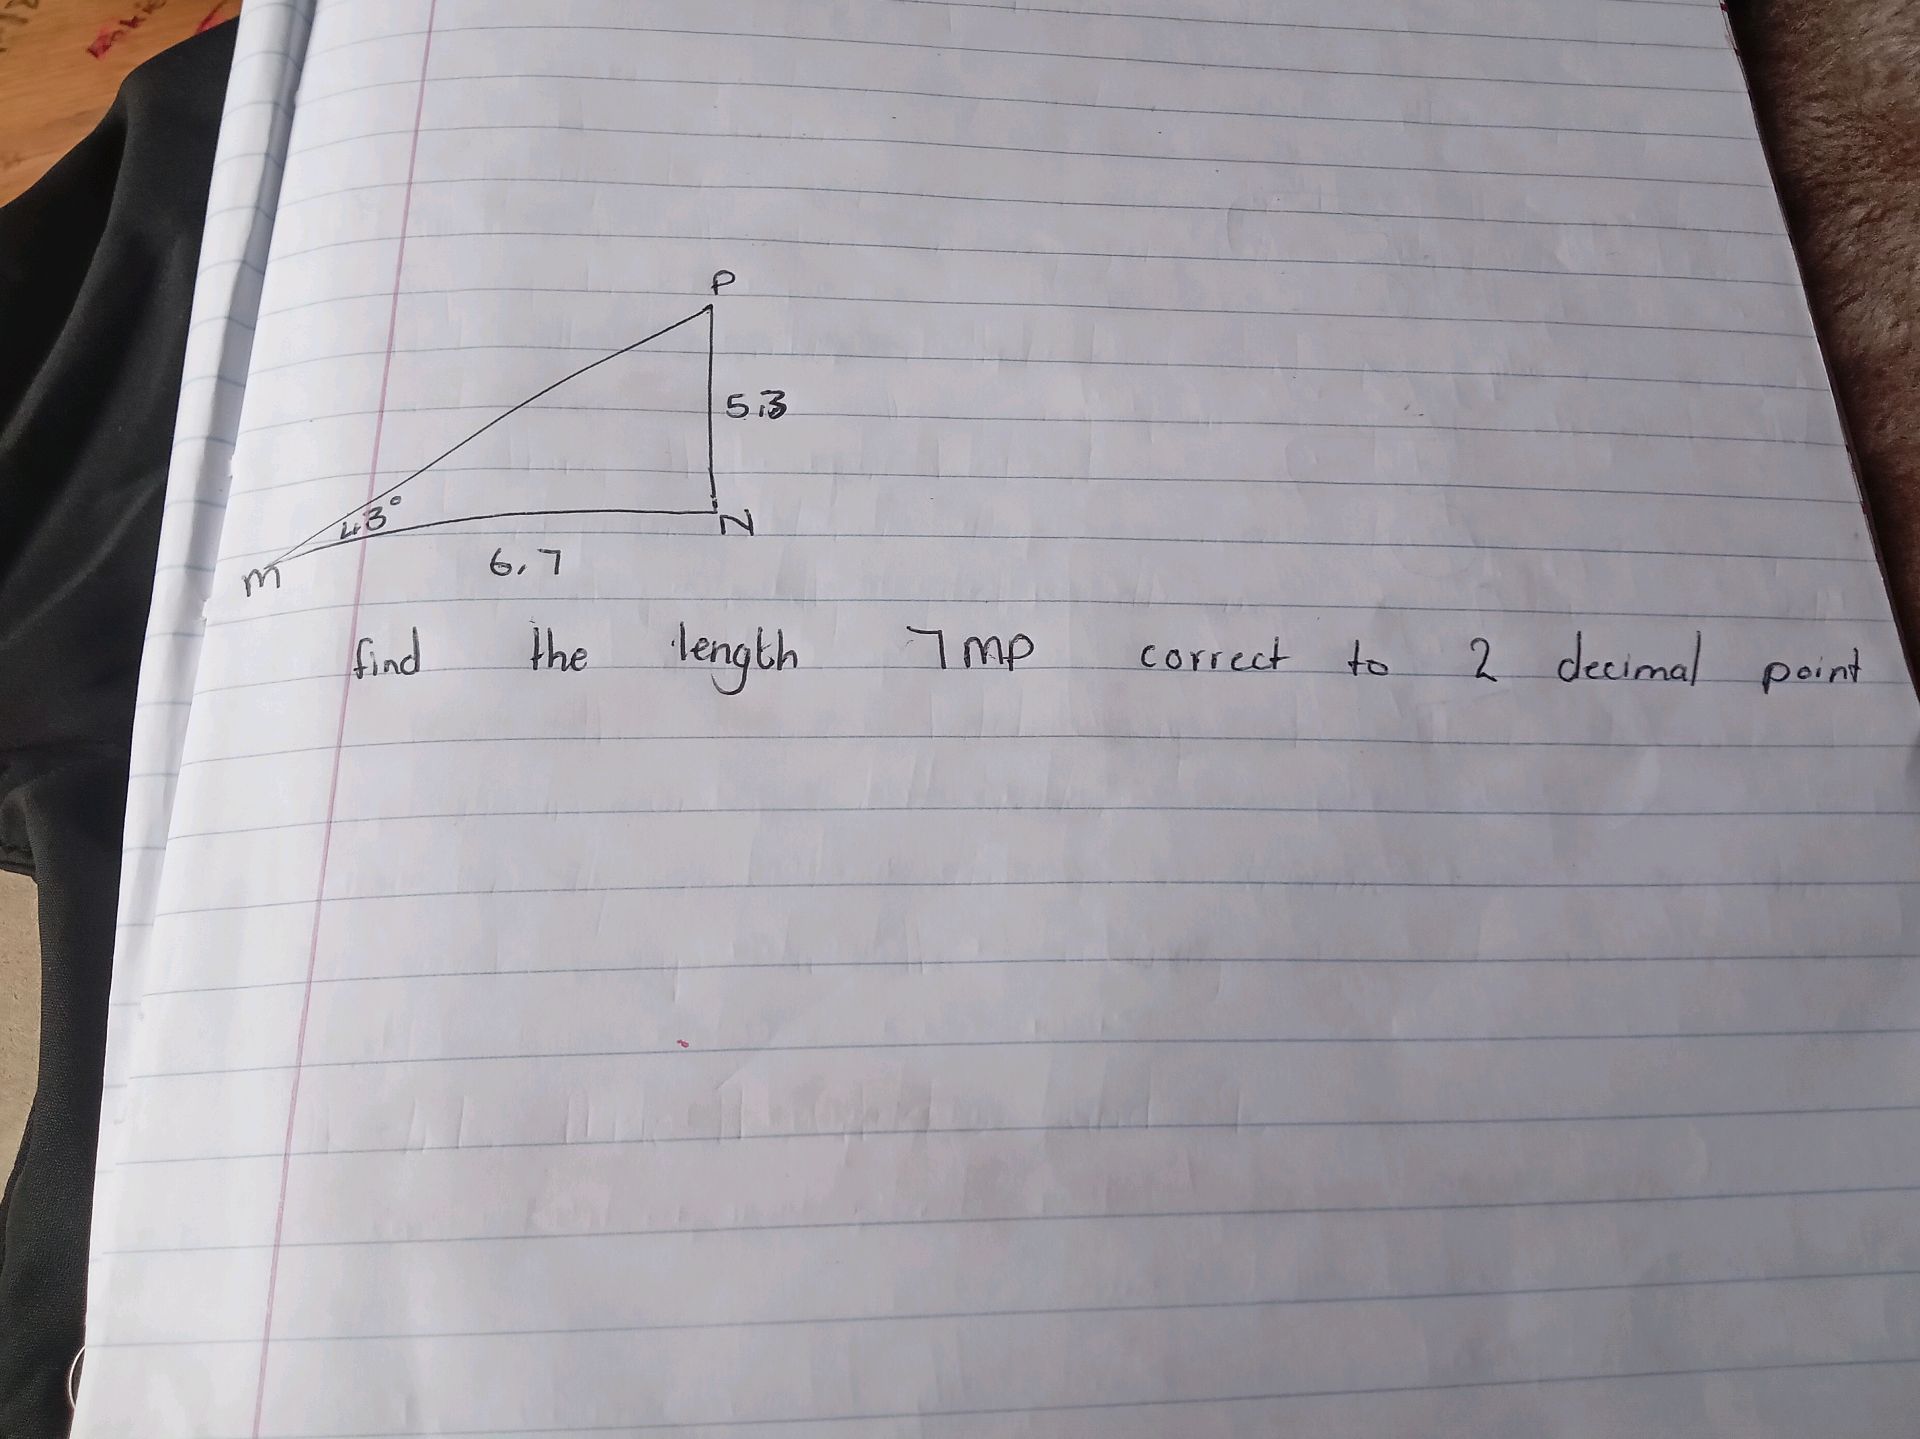 P
5.3
43°
N
M
6,7
find the length 7 mp correct to 2 decimal point